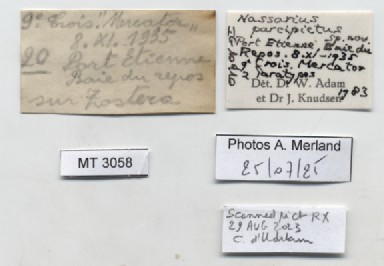 9e Crois. "Mercator"
8. XI. 1935
20 Port Etienne
Baie du repos
sur Zostera
Nassarius
parcipictus
sp. nov.
Port Etienne, Baie du
Repos. 8.XI-1935
9e Crois. Mercator
2 paratypes
Dét. Dr W. Adam
et Dr J. Knudsen
1983
MT 3058
Photos A. Merland
25/07/25
Scanned pict RX
29 AUG 2023